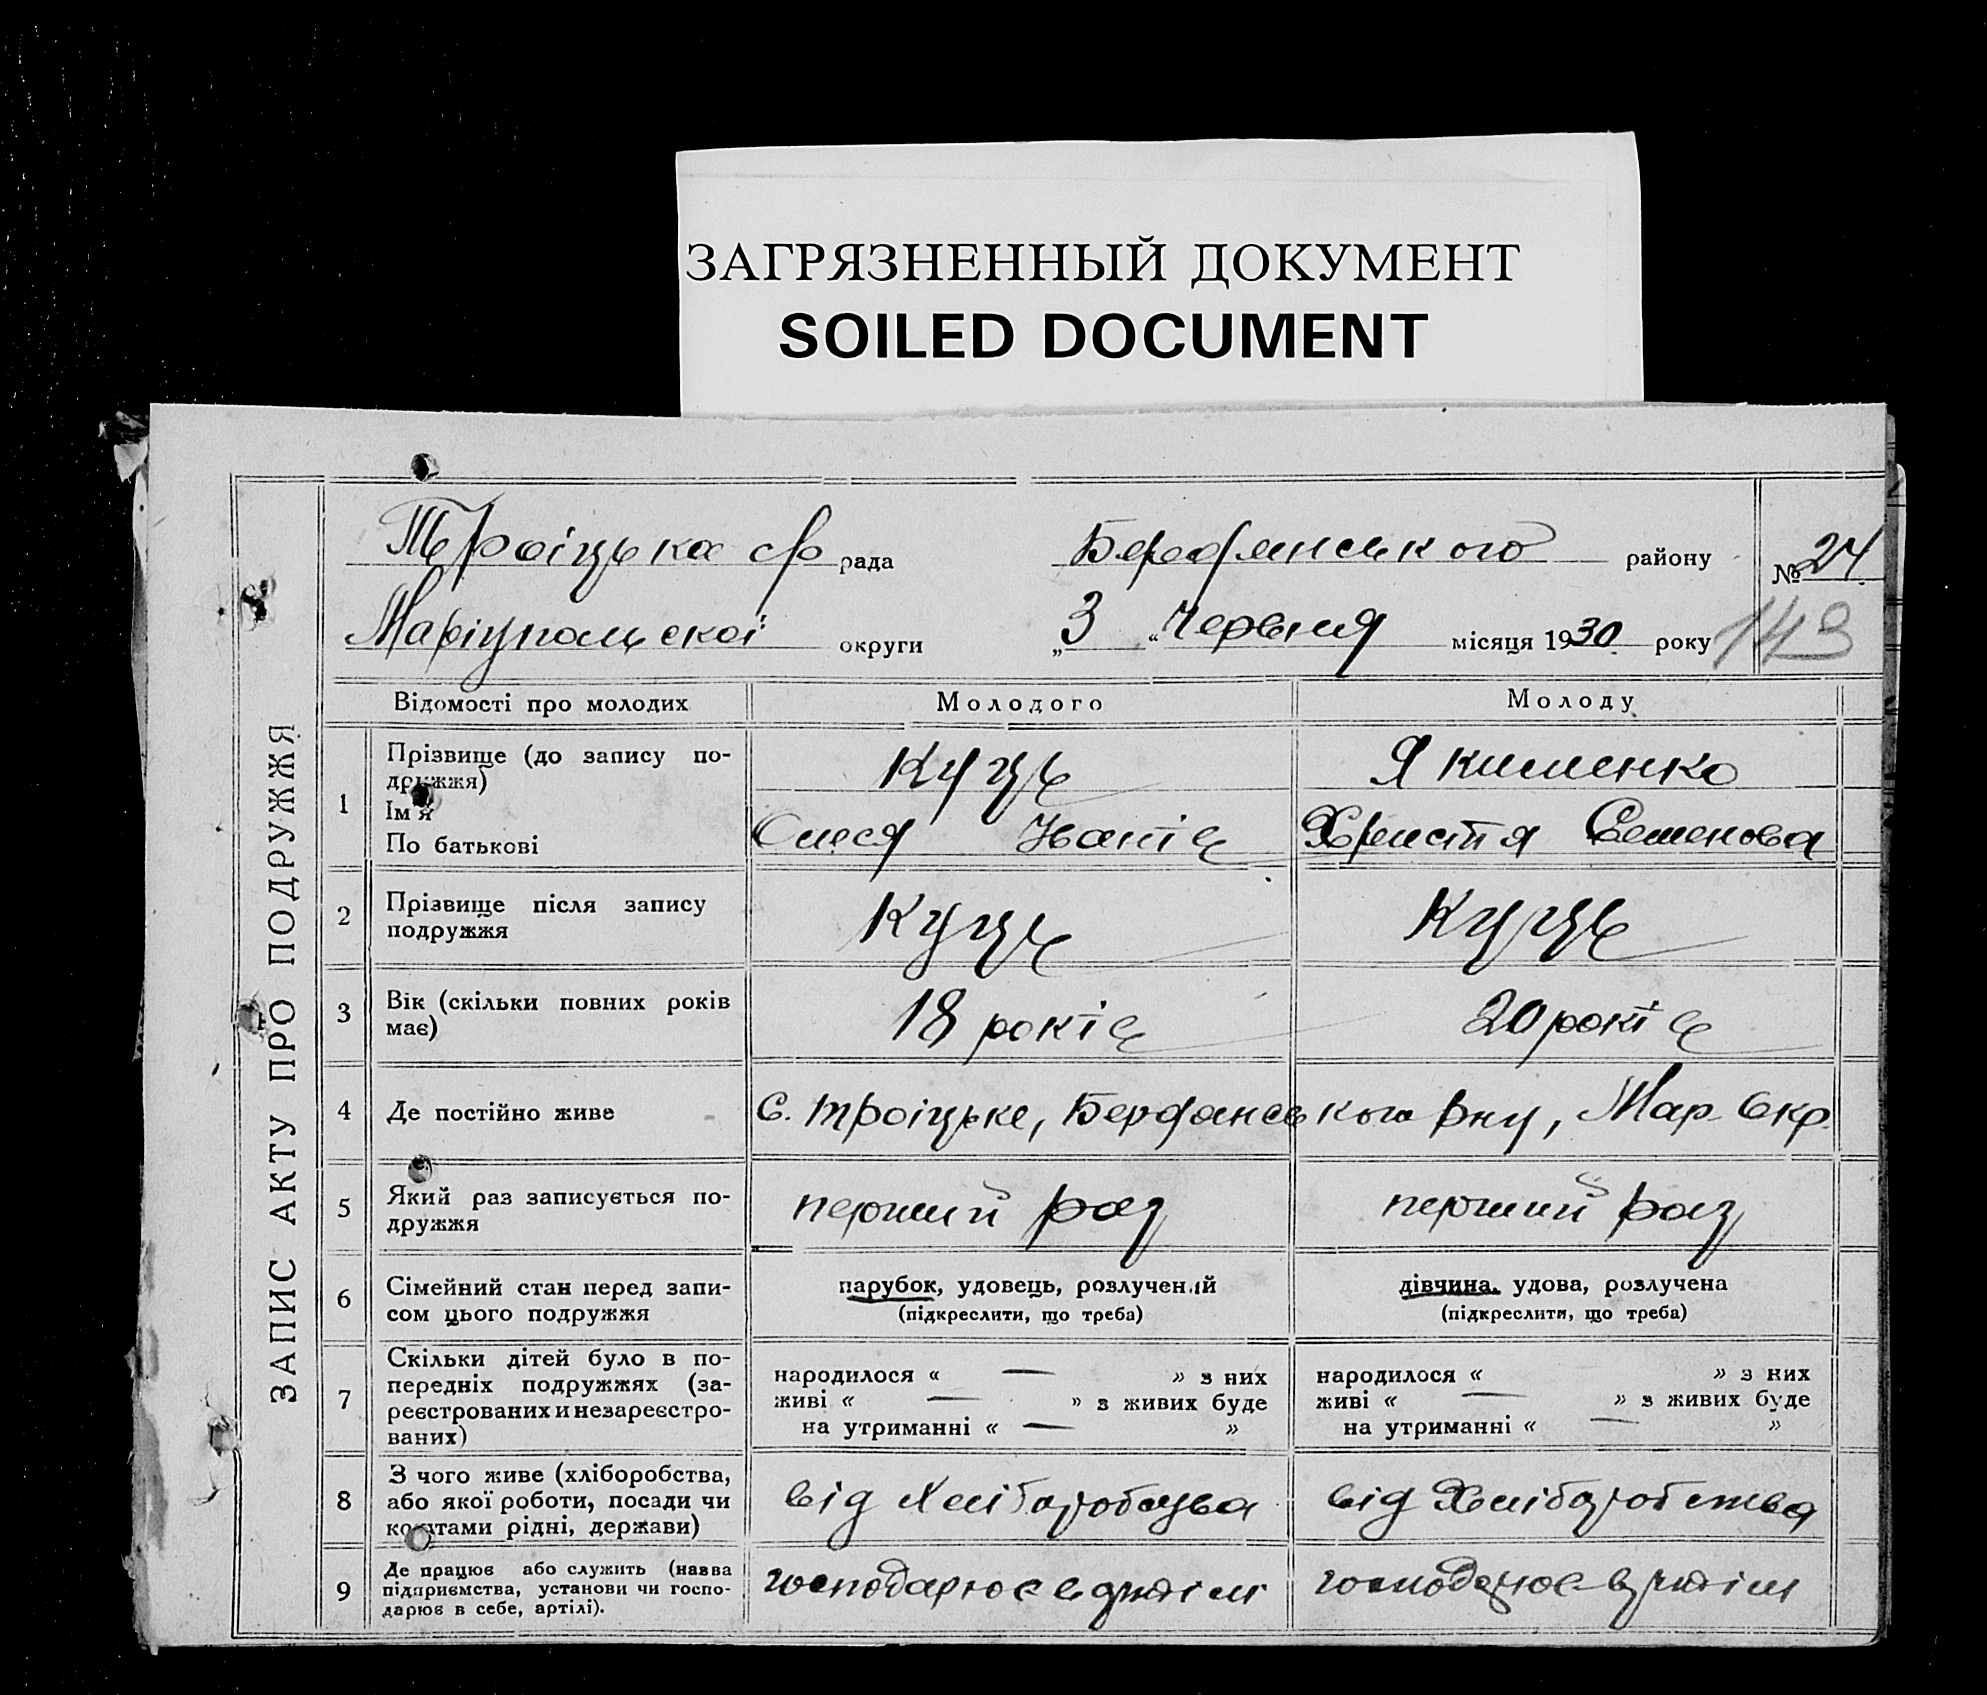 ЗАГРЯЗНЕННЫЙ ДОКУМЕНТ
SOILED DOCUMENT
ЗАПИС АКТУ ПРО ПОДРУЖЖЯ
Троіцька с/р рада Бердянського району № 24
Маріупольскої округи „3“ Червня місяця 1930 року 143
Відомості про молодих Молодого Молоду
1 Прізвище (до запису по-
дружжя) Куць Якименко
Ім'я
По батькові Олеся Іванів Христя Семенова
2 Прізвище після запису
подружжя Куць Куць
3 Вік (скільки повних років
має) 18 років 20 років
4 Де постійно живе с. Троіцьке, Бердянського Рну, Мар. Окр.
5 Який раз записується по-
дружжя перший раз перший раз
6 Сімейний стан перед запи-
сом цього подружжя
парубок, удовець, розлучений
(підкреслити, що треба)
дівчина, удова, розлучена
(підкреслити, що треба)
7 Скільки дітей було в по-
передніх подружжях (за-
реєстрованих и незареєстро-
ваних)
народилося « — » з них
живі « — » з живих буде
на утриманні « — »
народилося « » з них
живі « — » з живих буде
на утриманні « — »
8 З чого живе (хліборобства,
або якої роботи, посади чи
коштами рідні, держави)
від Хліборобства від Хліборобства
9 Де працює або служить (назва
підприємства, установи чи госпо-
дарює в себе, артілі).
господарює в артіли господарює в артіли